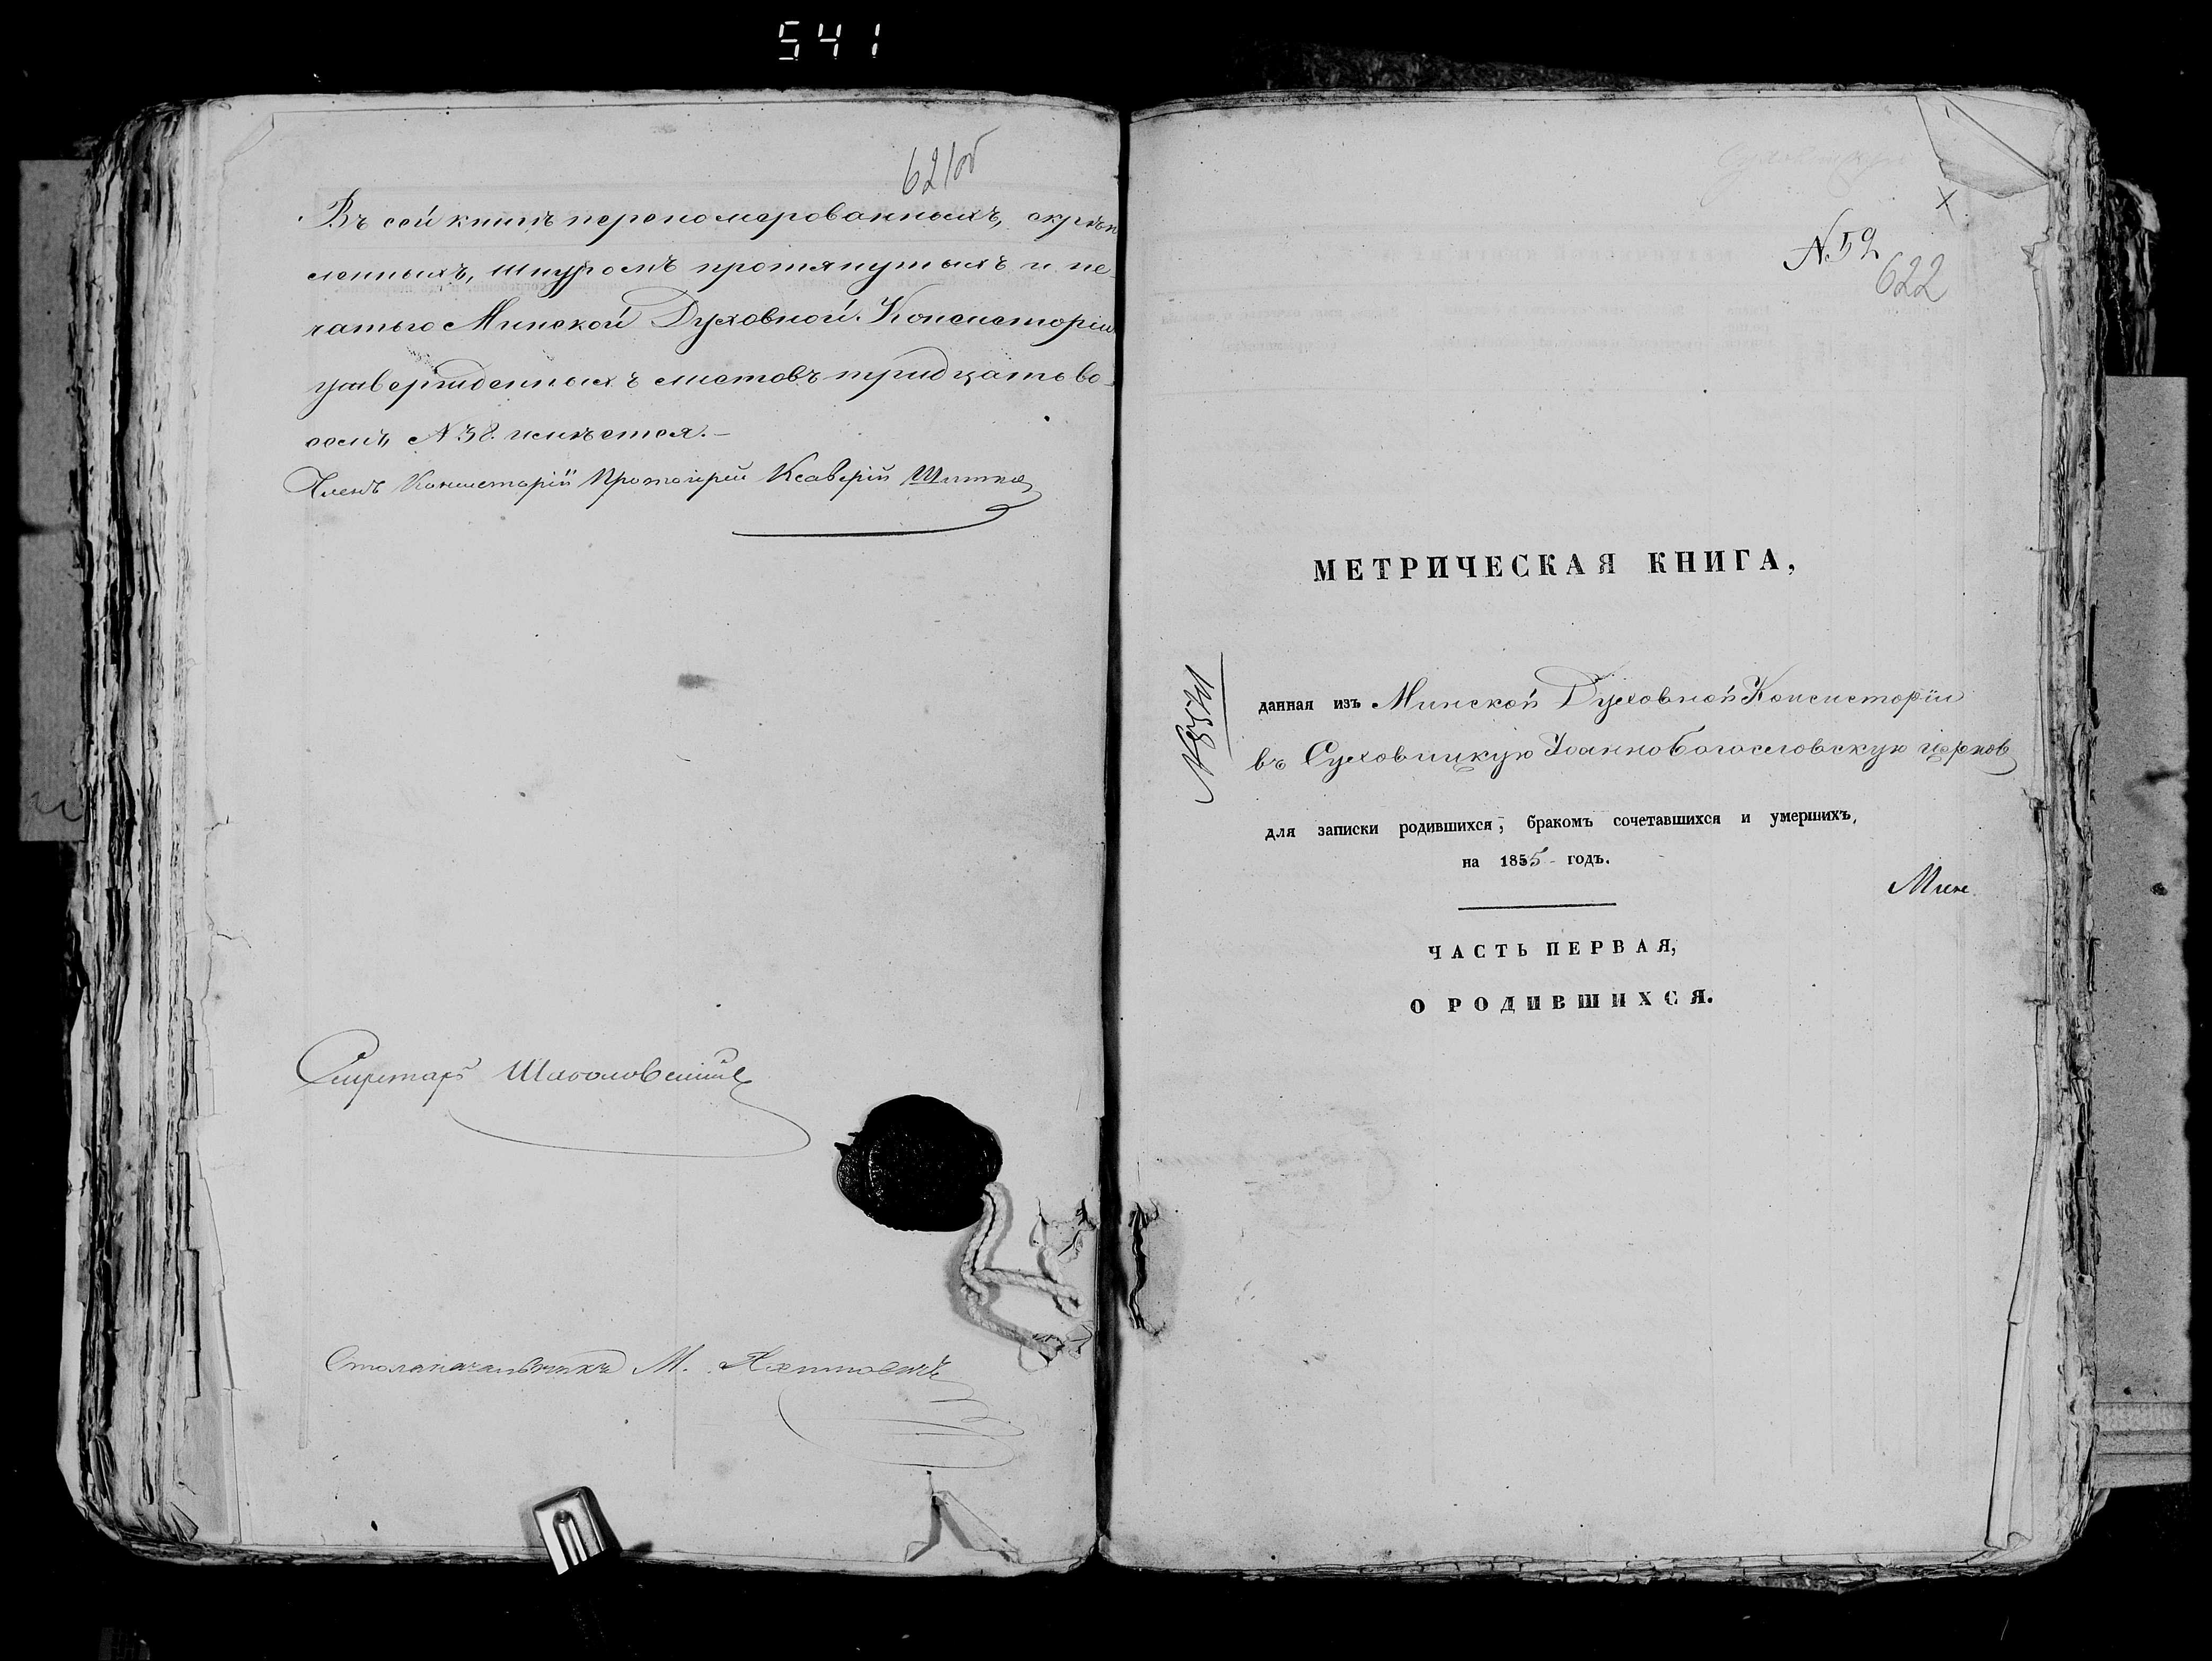 541
621об
Въ сей книгѣ перепомерованныхъ, скрѣп
ленныхъ, шнуромъ протянутыхъ и пе-
чатью Минской Духовной Консисторіи
утвержденныхъ листовъ тридцать во-
семь N 38. имѣется.-
Членъ Консисторіи Протоіерей Ксаверій
Секретарь
Столоначальникъ М.
X
N 52
622
МЕТРИЧЕСКАЯ КНИГА,
данная изъ Минской Духовной Консисторіи
въ Суховицкую Іоанно Богословскую церковь
для записки родившихся, бракомъ сочетавшихся и умершихъ,
на 1855 годъ.
Мин.
ЧАСТЬ ПЕРВАЯ,
О РОДИВШИХСЯ.